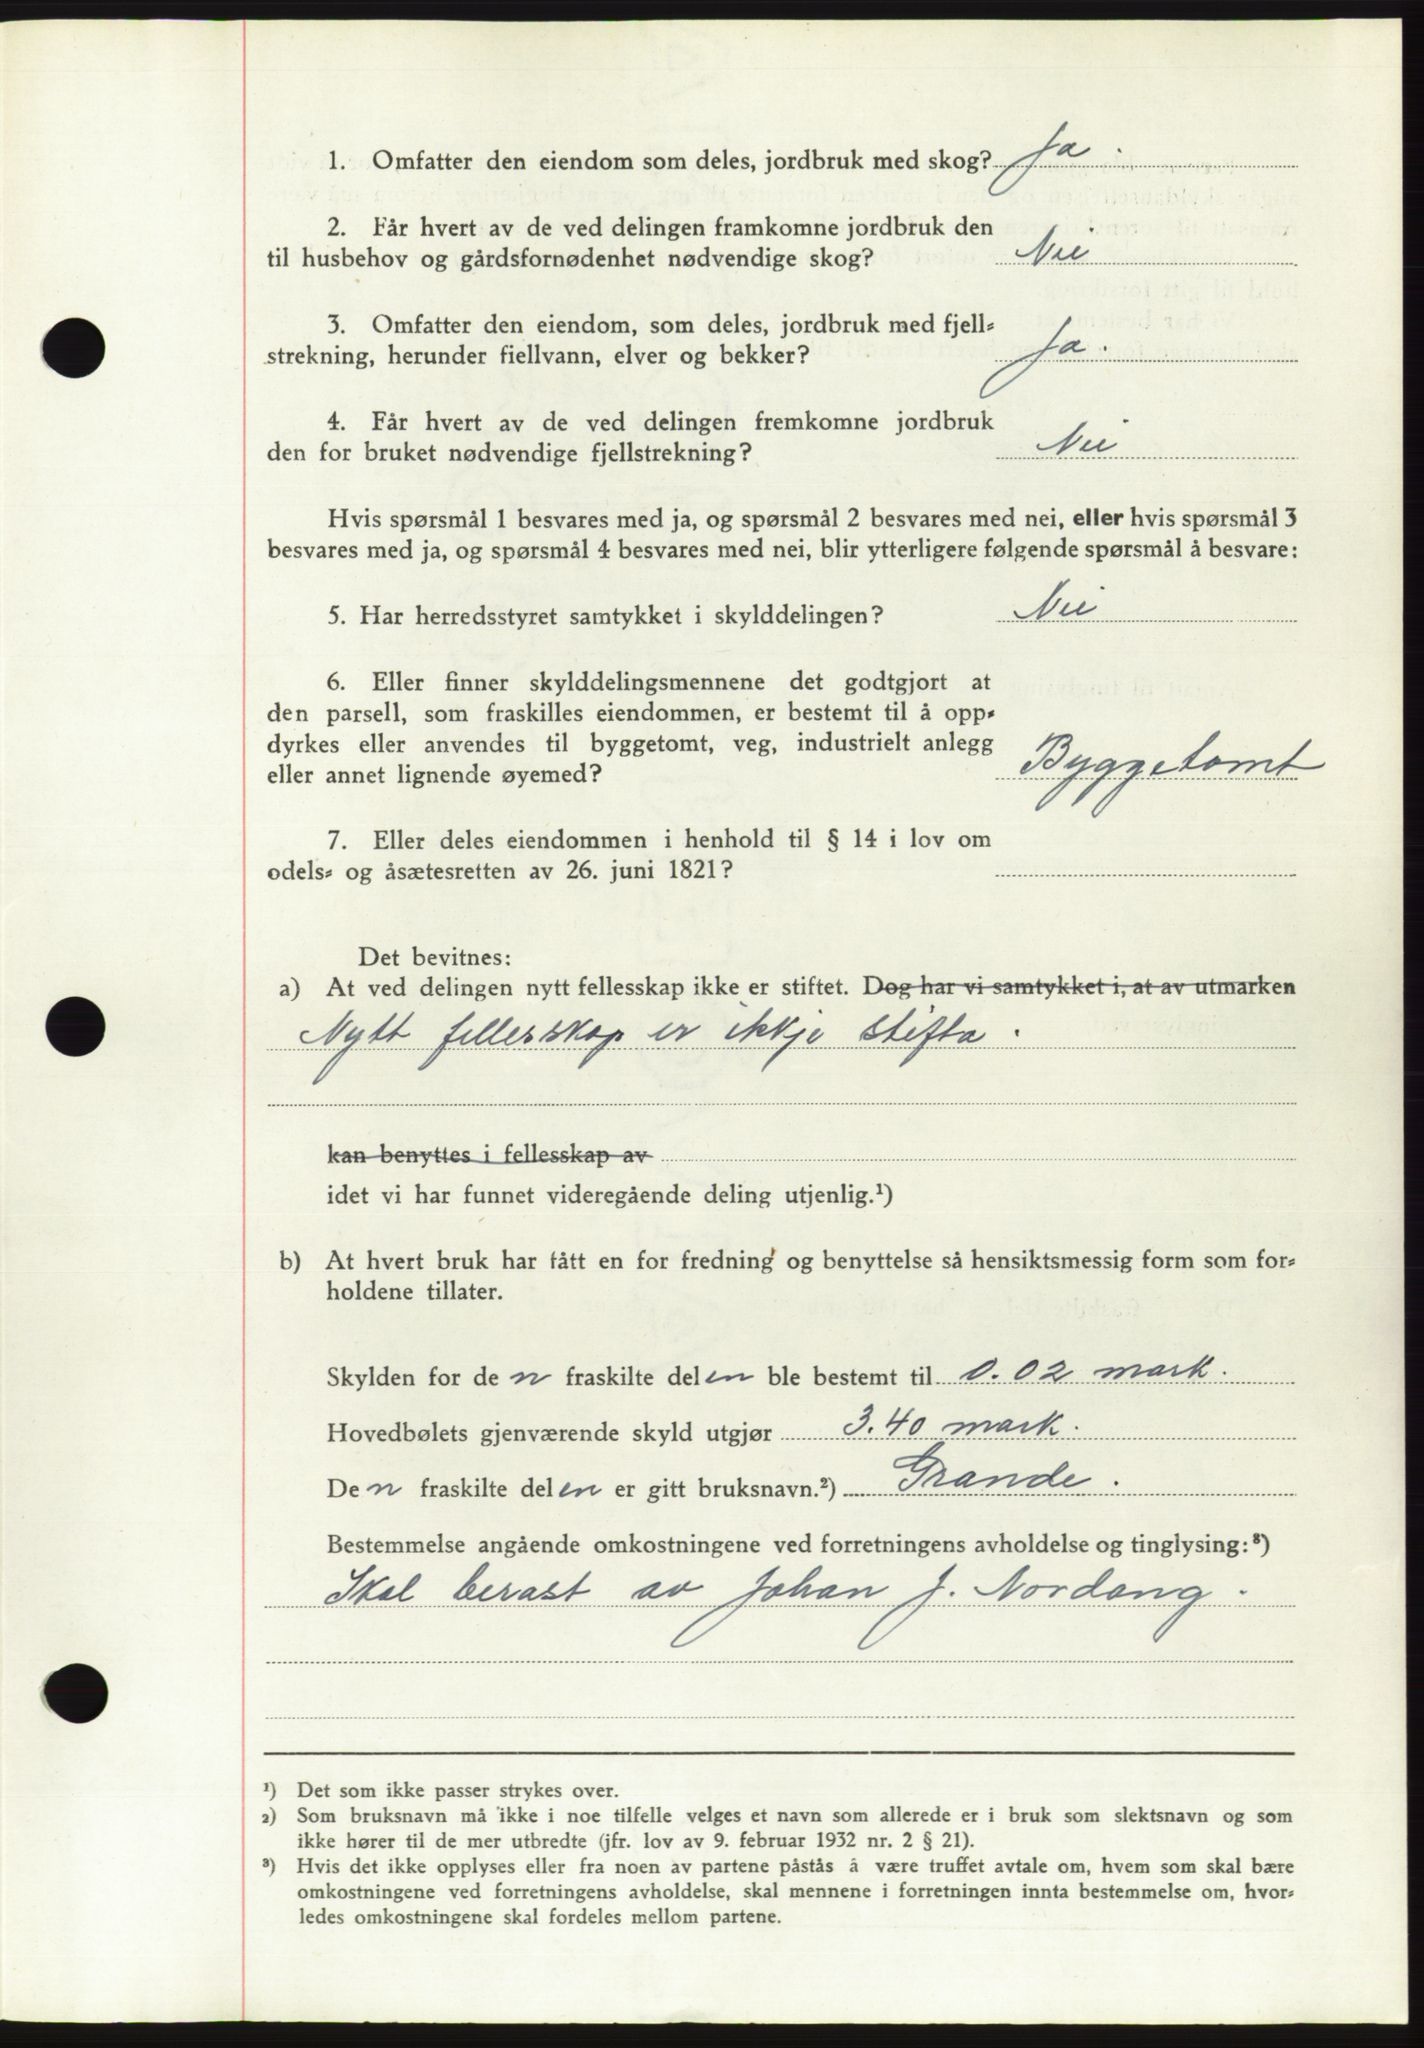 1. Omfatter den eiendom som deles, jordbruk med skog? Ja.
2. Får hvert av de ved delingen framkomne jordbruk den
til husbehov og gårdsfornødenhet nødvendige skog? Nei
3. Omfatter den eiendom, som deles, jordbruk med fjell-
strekning, herunder fiellvann, elver og bekker? Ja.
4. Får hvert av de ved delingen fremkomne jordbruk
den for bruket nødvendige fjellstrekning? Nei
Hvis spørsmål 1 besvares med ja, og spørsmål 2 besvares med nei, eller hvis spørsmål 3
besvares med ja, og spørsmål 4 besvares med nei, blir ytterligere følgende spørsmål å besvare:
5. Har herredsstyret samtykket i skylddelingen? Nei
6. Eller finner skylddelingsmennene det godtgjort at
den parsell, som fraskilles eiendommen, er bestemt til å opp-
dyrkes eller anvendes til byggetomt, veg, industrielt anlegg
eller annet lignende øyemed? Byggetomt
7. Eller deles eiendommen i henhold til § 14 i lov om
odels- og åsætesretten av 26. juni 1821?
Det bevitnes:
a) At ved delingen nytt fellesskap ikke er stiftet. Dog har vi samtykket i, at av utmarken
Nytt fellesskap er ikkje stifta.
kan benyttes i fellesskap av
idet vi har funnet videregående deling utjenlig.¹)
b) At hvert bruk har fått en for fredning og benyttelse så hensiktsmessig form som for-
holdene tillater.
Skylden for den fraskilte delen ble bestemt til 0.02 mark.
Hovedbølets gjenværende skyld utgjør 3.40 mark.
Den fraskilte delen er gitt bruksnavn.²) Grande.
Bestemmelse angående omkostningene ved forretningens avholdelse og tinglysing:³)
Skal berast av Johan J. Nordang.
¹) Det som ikke passer strykes over.
²) Som bruksnavn må ikke i noe tilfelle velges et navn som allerede er i bruk som slektsnavn og som
ikke hører til de mer utbredte (jfr. lov av 9. februar 1932 nr. 2 § 21).
³) Hvis det ikke opplyses eller fra noen av partene påstås å være truffet avtale om, hvem som skal bære
omkostningene ved forretningens avholdelse, skal mennene i forretningen innta bestemmelse om, hvor-
ledes omkostningene skal fordeles mellom partene.